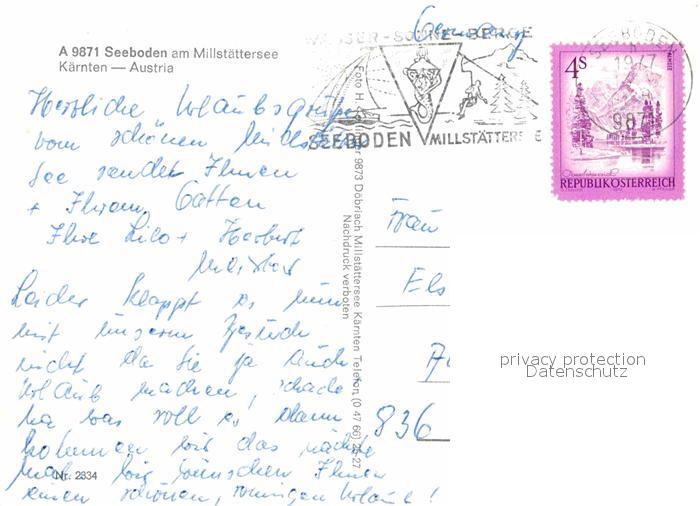 A 9871 Seeboden am Millstättersee
Kärnten — Austria
Germany
WASSER-SONNE-BERGE
SEEBODEN MILLSTÄTTERSEE
SEEBODEN
1977
9871
4S
REPUBLIK ÖSTERREICH
Herzliche Urlaubsgrüße
vom schönen
See senden Ihnen
+ Ihrem Gatten
Ihre Lilo + Herbert
Leider klappt es nun
mit unserem Besuch
nicht da Sie ja auch
Urlaub machen, schade
na was soll's, dann
kommen wir das nächste
mal. Wir wünschen Ihnen
einen schönen, sonnigen Urlaub!
Nr. 2834
9873 Döbriach Millstättersee Kärnten Telefon (0 47 66) 2
Nachdruck verboten
Frau
Els
836
privacy protection
Datenschutz